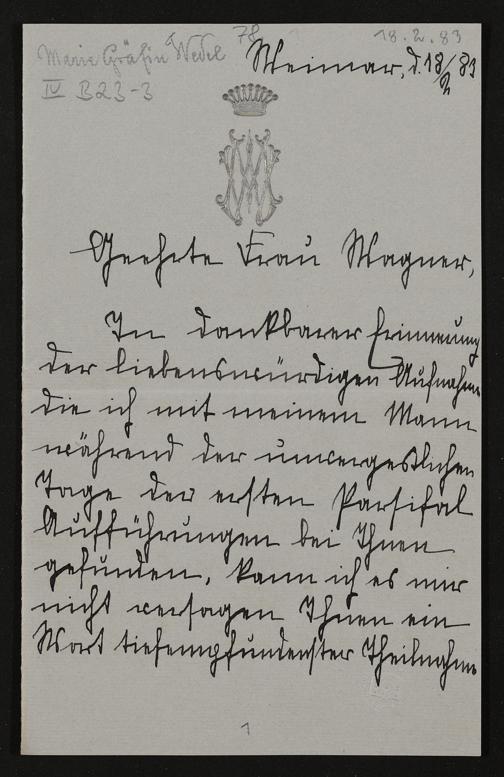 78
18.2.83
Marie Gräfin Wedel
IV B23-3
Weimar, d. 18/2 83
Geehrte Frau Wagner,
In dankbarer Erinnerung
der liebenswürdigen Aufnahme
die ich mit meinem Mann
während der unvergeßlichen
Tage der ersten Parsifal
Aufführungen bei Ihnen
gefunden, kann ich es mir
nicht versagen Ihnen ein
Wort tiefempfundenster Theilnahme
1